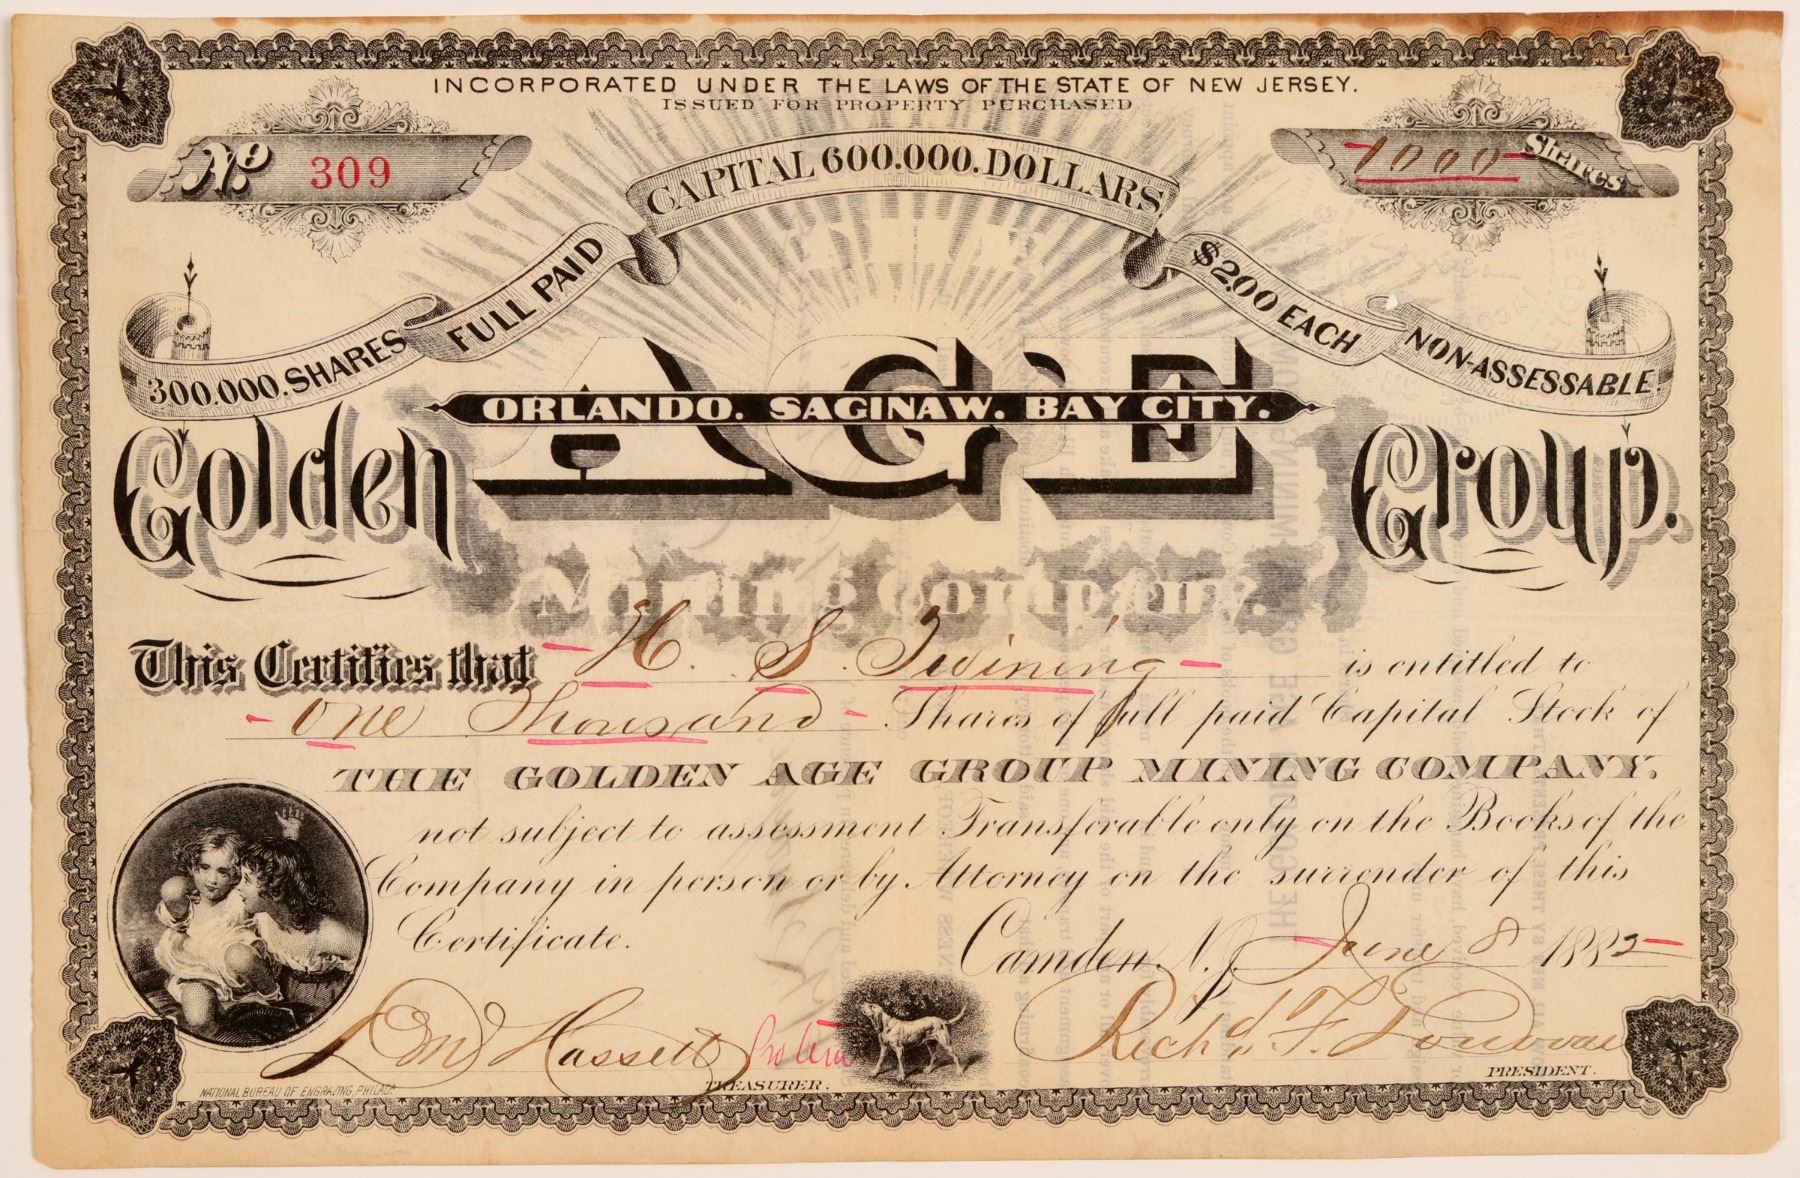 INCORPORATED UNDER THE LAWS OF THE STATE OF NEW JERSEY.
ISSUED FOR PROPERTY PURCHASED
No. 309
1000 Shares
300.000. SHARES FULL PAID CAPITAL 600.000. DOLLARS. $2.00 EACH NON-ASSESSABLE.
ORLANDO. SAGINAW. BAY CITY.
Golden AGE Group.
Mining Company.
This Certifies that H. S. Twining is entitled to
One Thousand Shares of full paid Capital Stock of
THE GOLDEN AGE GROUP MINING COMPANY.
not subject to assessment Transferable only on the Books of the
Company in person or by Attorney on the surrender of this
Certificate.
Camden, N.J. June 8 1882
Hassett Pro tem
Rich'd F. Donovan
TREASURER.
PRESIDENT.
NATIONAL BUREAU OF ENGRAVING, PHILADA.